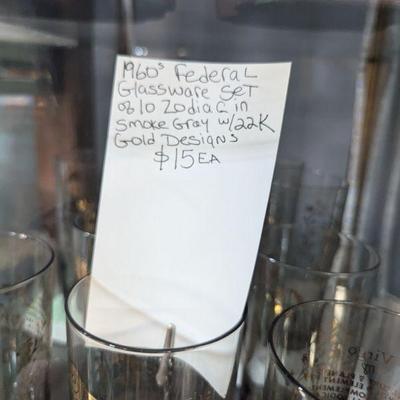 1960s Federal
Glassware Set
of 10 Zodiac in
Smoke Gray w/22K
Gold Designs
$15 EA
Virgo